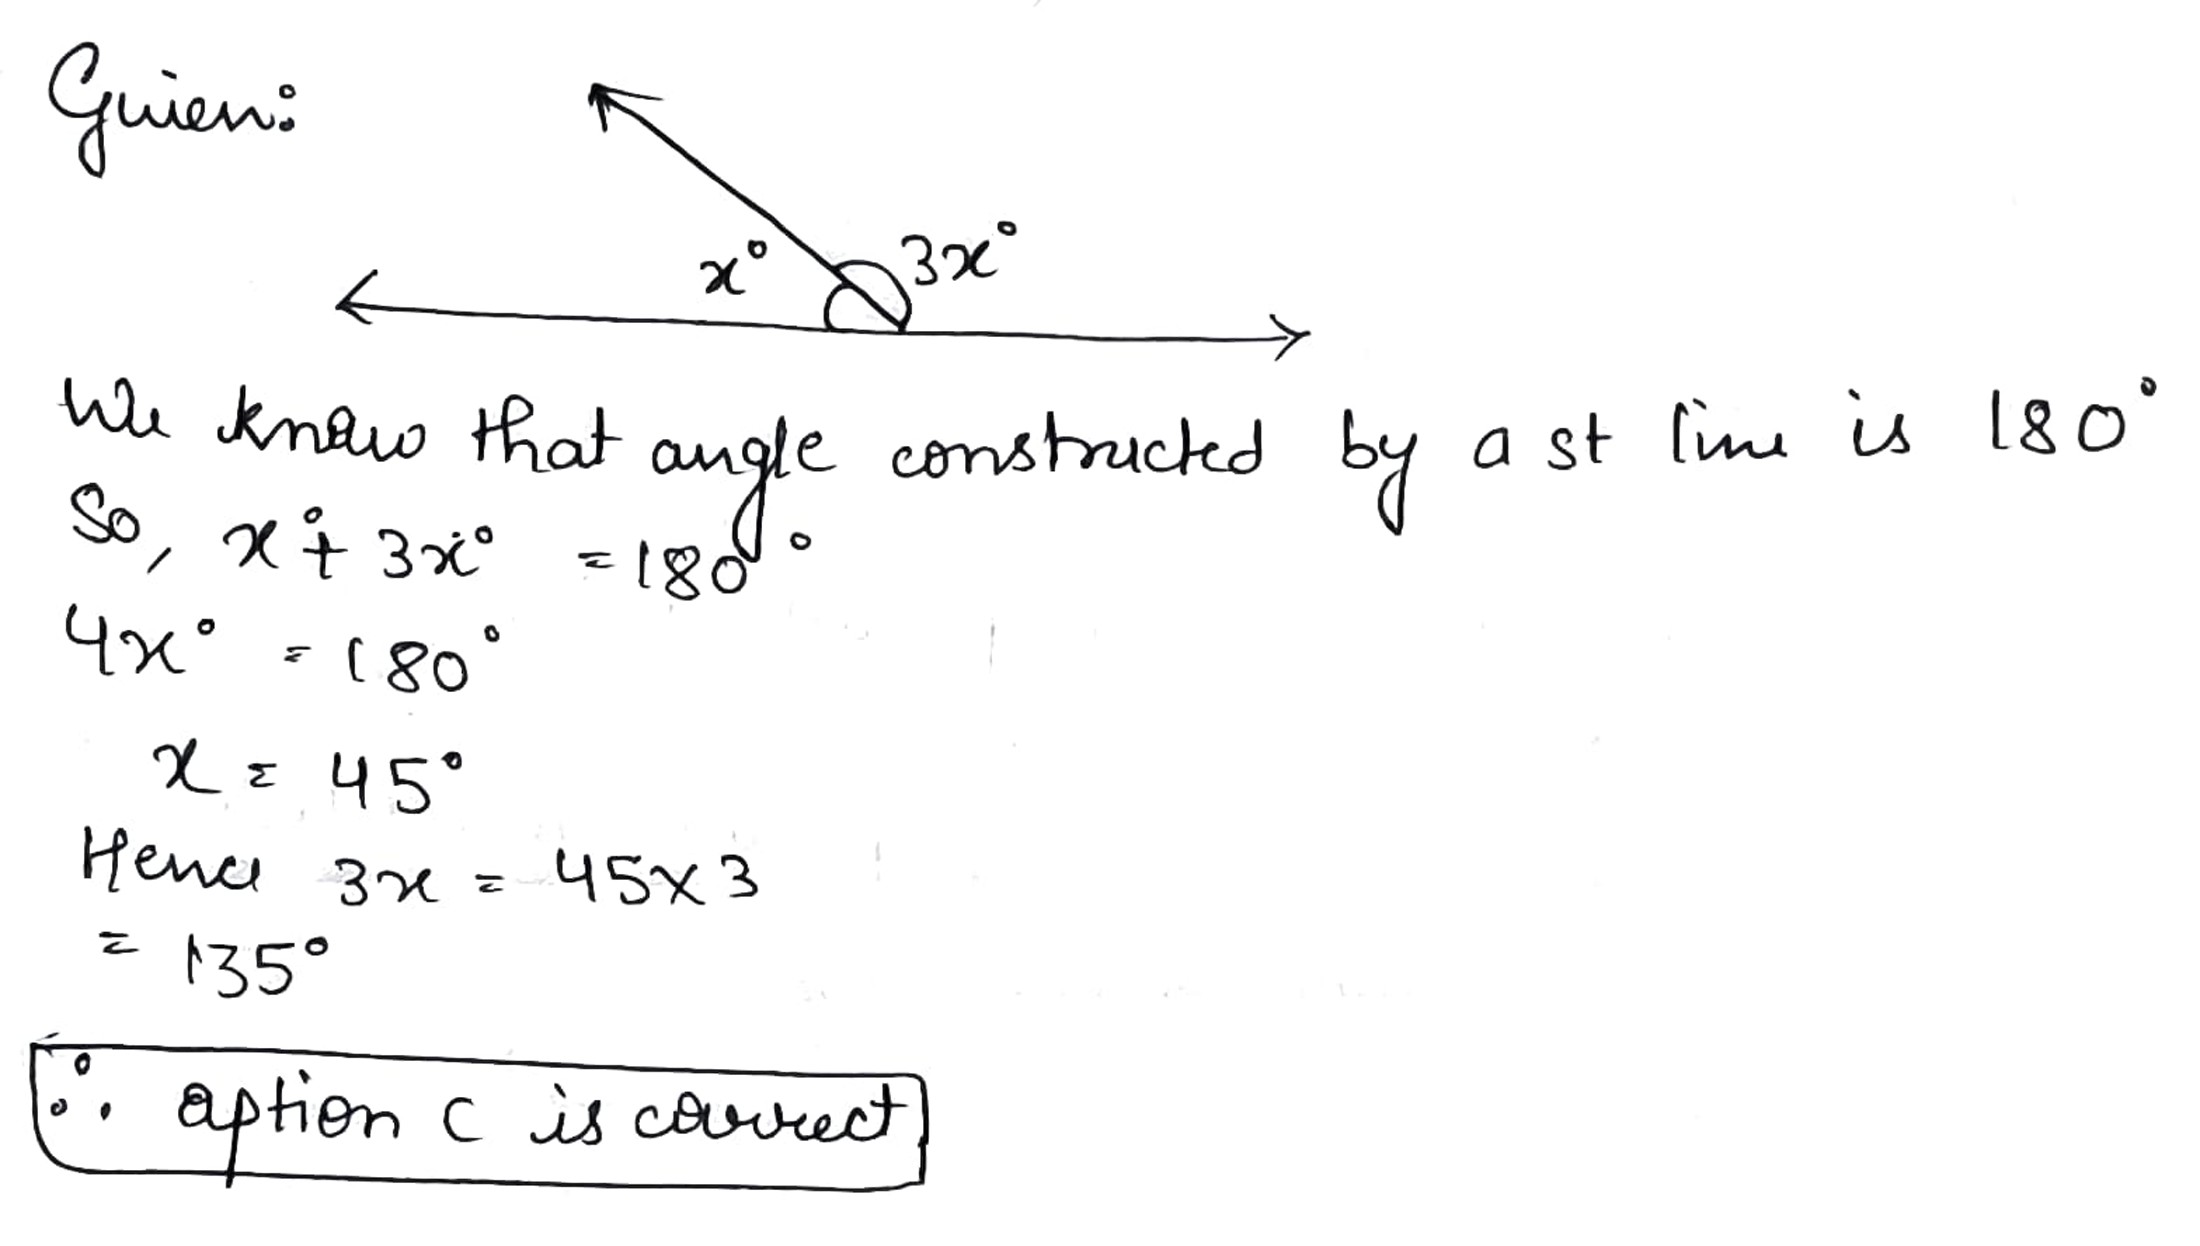 Given:
x° 3x°
We know that angle constructed by a st line is 180°
So, x°+ 3x° = 180°
4x° = 180°
x = 45°
Hence 3x = 45×3
= 135°
∴ option C is correct